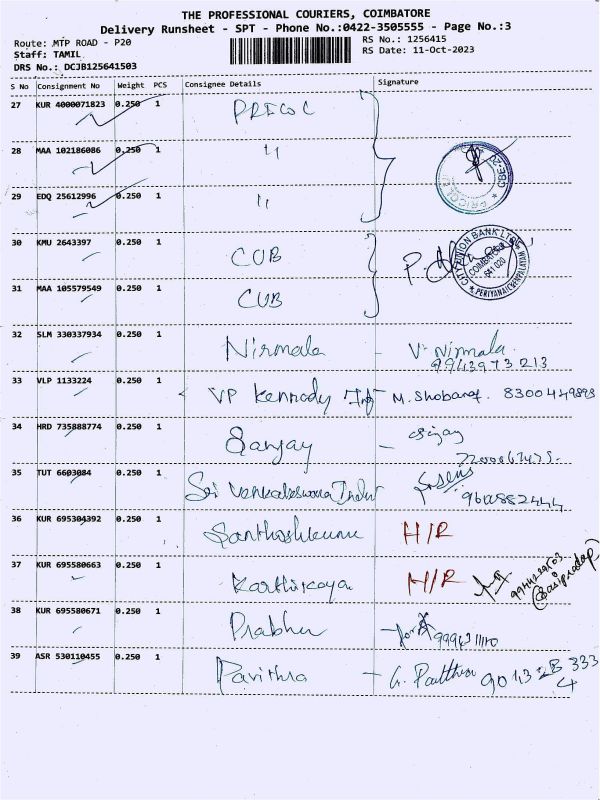 THE PROFESSIONAL COURIERS, COIMBATORE
Delivery Runsheet - SPT - Phone No.:0422-3505555 - Page No.:3
Route: MTP ROAD - P20
RS No.: 1256415
Staff: TAMIL
RS Date: 11-Oct-2023
DRS No.: DCJB125641503
S No Consignment No Weight PCS Consignee Details Signature
27 KUR 4000071823 0.250 1 PRICOL
28 MAA 102186086 0.250 1 "
29 EDQ 25612996 0.250 1 "
30 KMU 2643397 0.250 1 CUB
CITY UNION BANK LTD
COIMBATORE
641 020
31 MAA 105579549 0.250 1 CUB
32 SLM 330337934 0.250 1 Nirmala - V. Nirmala
9943973213
33 VLP 1133224 0.250 1 VP Kennady - M. Shobana. 8300449893
34 HRD 735888774 0.250 1 Sanjay -
35 TUT 6603084 0.250 1 Sri Venkateswara
36 KUR 695304392 0.250 1 Santhoshkumar H/R
37 KUR 695580663 0.250 1 Karthikaya H/R
38 KUR 695580671 0.250 1 Prabhu
39 ASR 530110455 0.250 1 Pavithra -